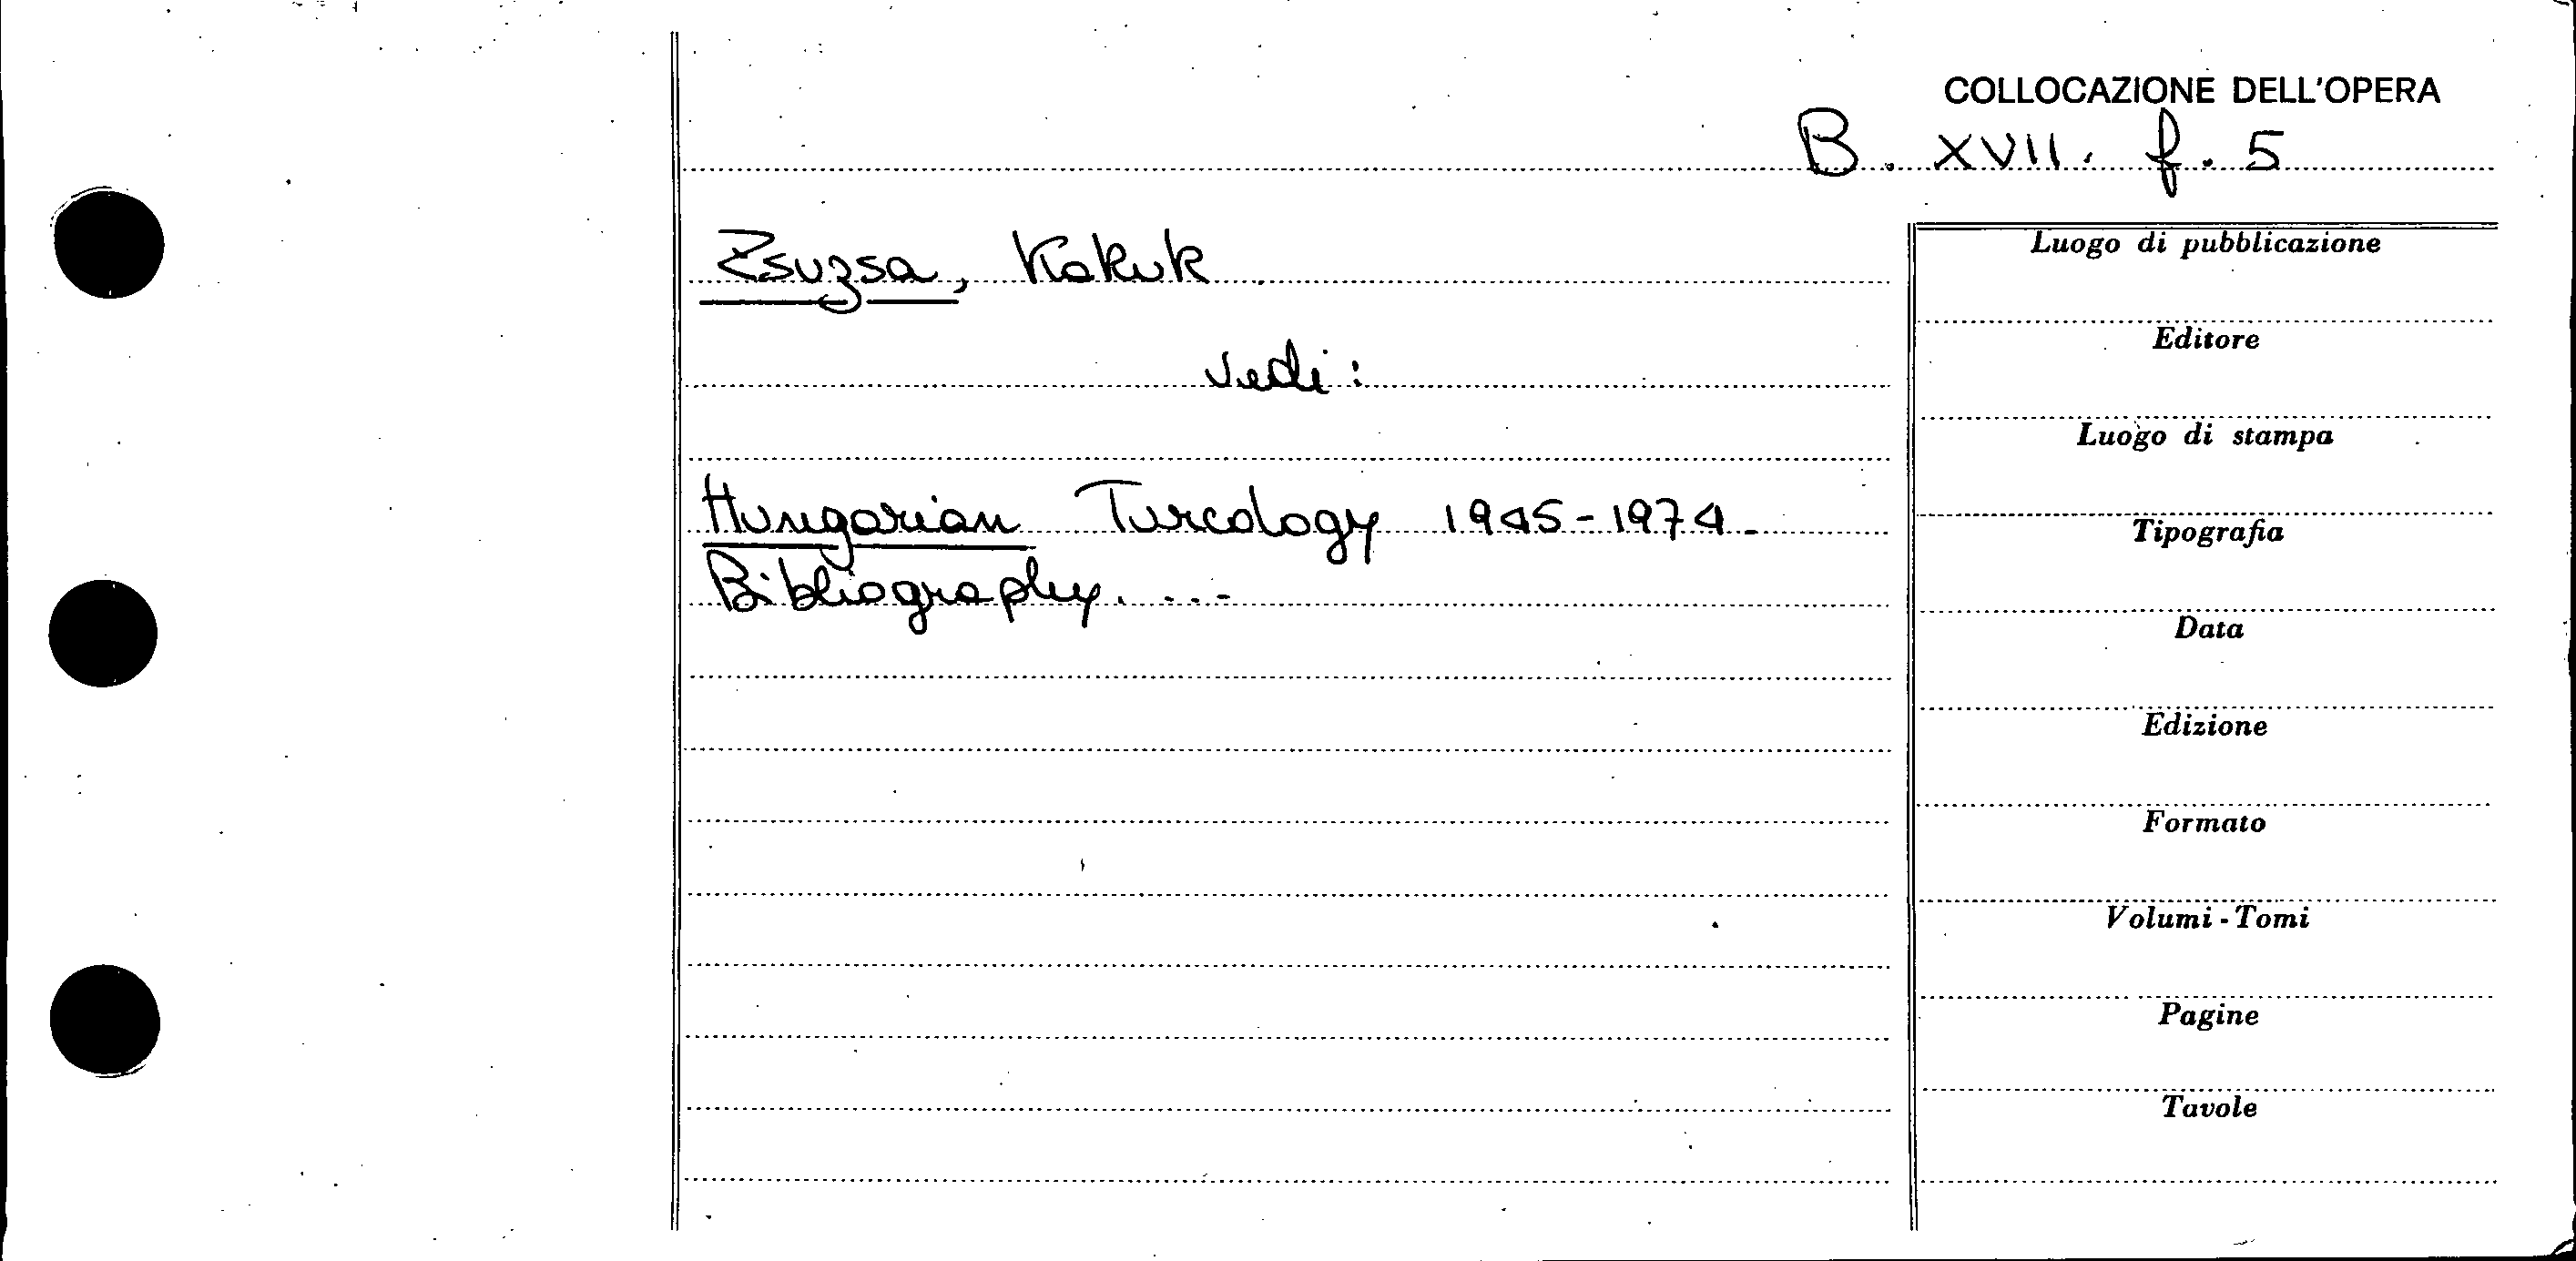 COLLOCAZIONE DELL'OPERA
B. XVII. f. 5
Zsuzsa, Kakuk
Vedi:
Hungarian Turcology 1945-1974.
Bibliography. ...
Luogo di pubblicazione
Editore
Luogo di stampa
Tipografia
Data
Edizione
Formato
Volumi - Tomi
Pagine
Tavole